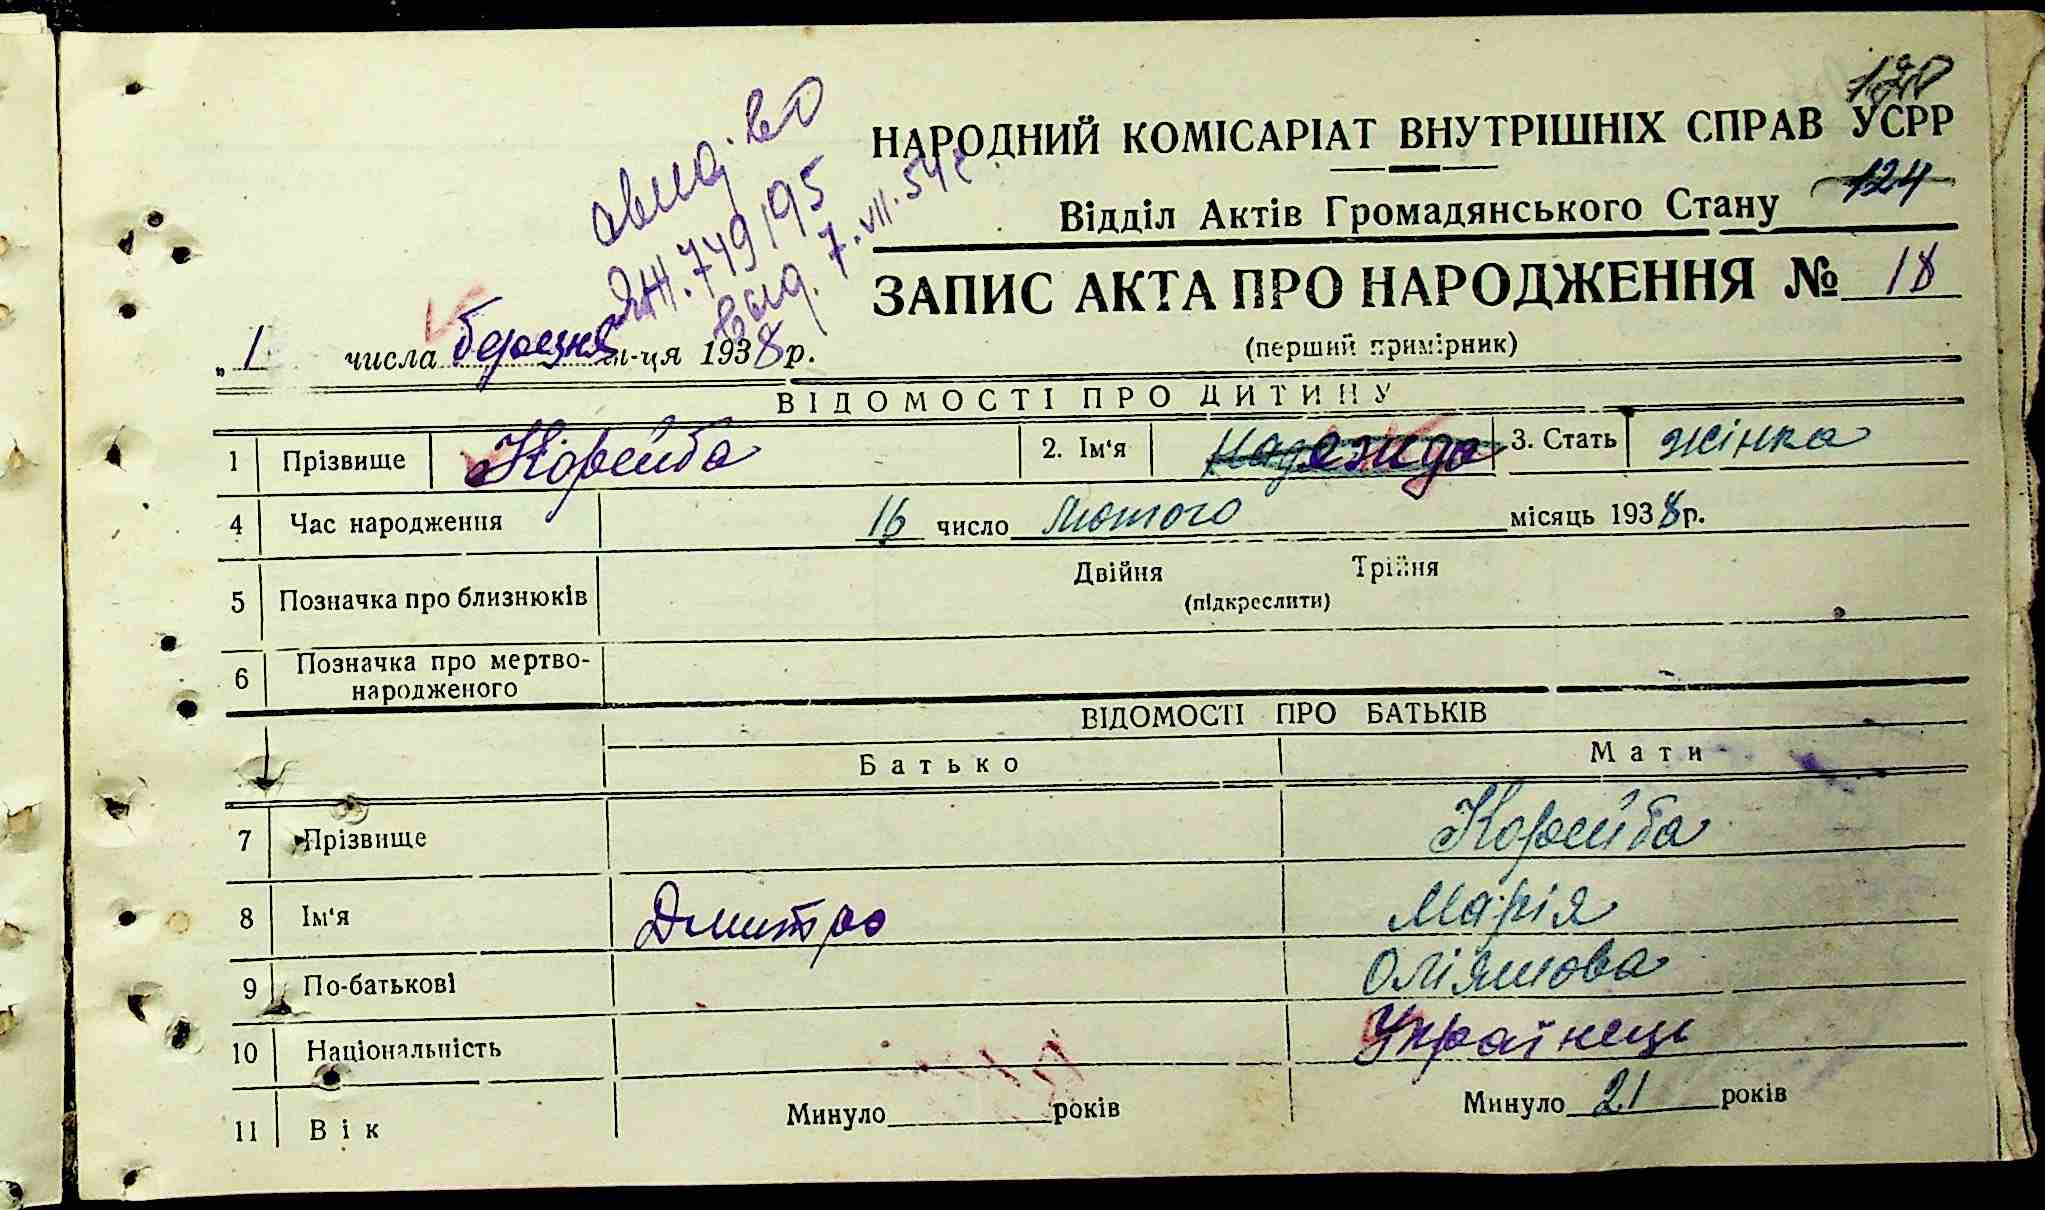 120
НАРОДНИЙ КОМІСАРІАТ ВНУТРІШНІХ СПРАВ УСРР
Відділ Актів Громадянського Стану 124
ЗАПИС АКТА ПРО НАРОДЖЕННЯ № 18
(перший примірник)
ЯЖ. 749195
выд. 7.VII.54 г.
„ 1 числа березня м-ця 1938 р.
ВІДОМОСТІ ПРО ДИТИНУ
1 Прізвище Корейба 2. Ім'я Надежда 3. Стать жінка
4 Час народження 16 число Лютого місяць 1938 р.
5 Позначка про близнюків Двійня Трійня
(підкреслити)
6 Позначка про мертво-
народженого
ВІДОМОСТІ ПРО БАТЬКІВ
Батько Мати
7 Прізвище Корейба
8 Ім'я Дмитро Марія
9 По-батькові
10 Національність Українець
11 Вік Минуло років Минуло 21 років